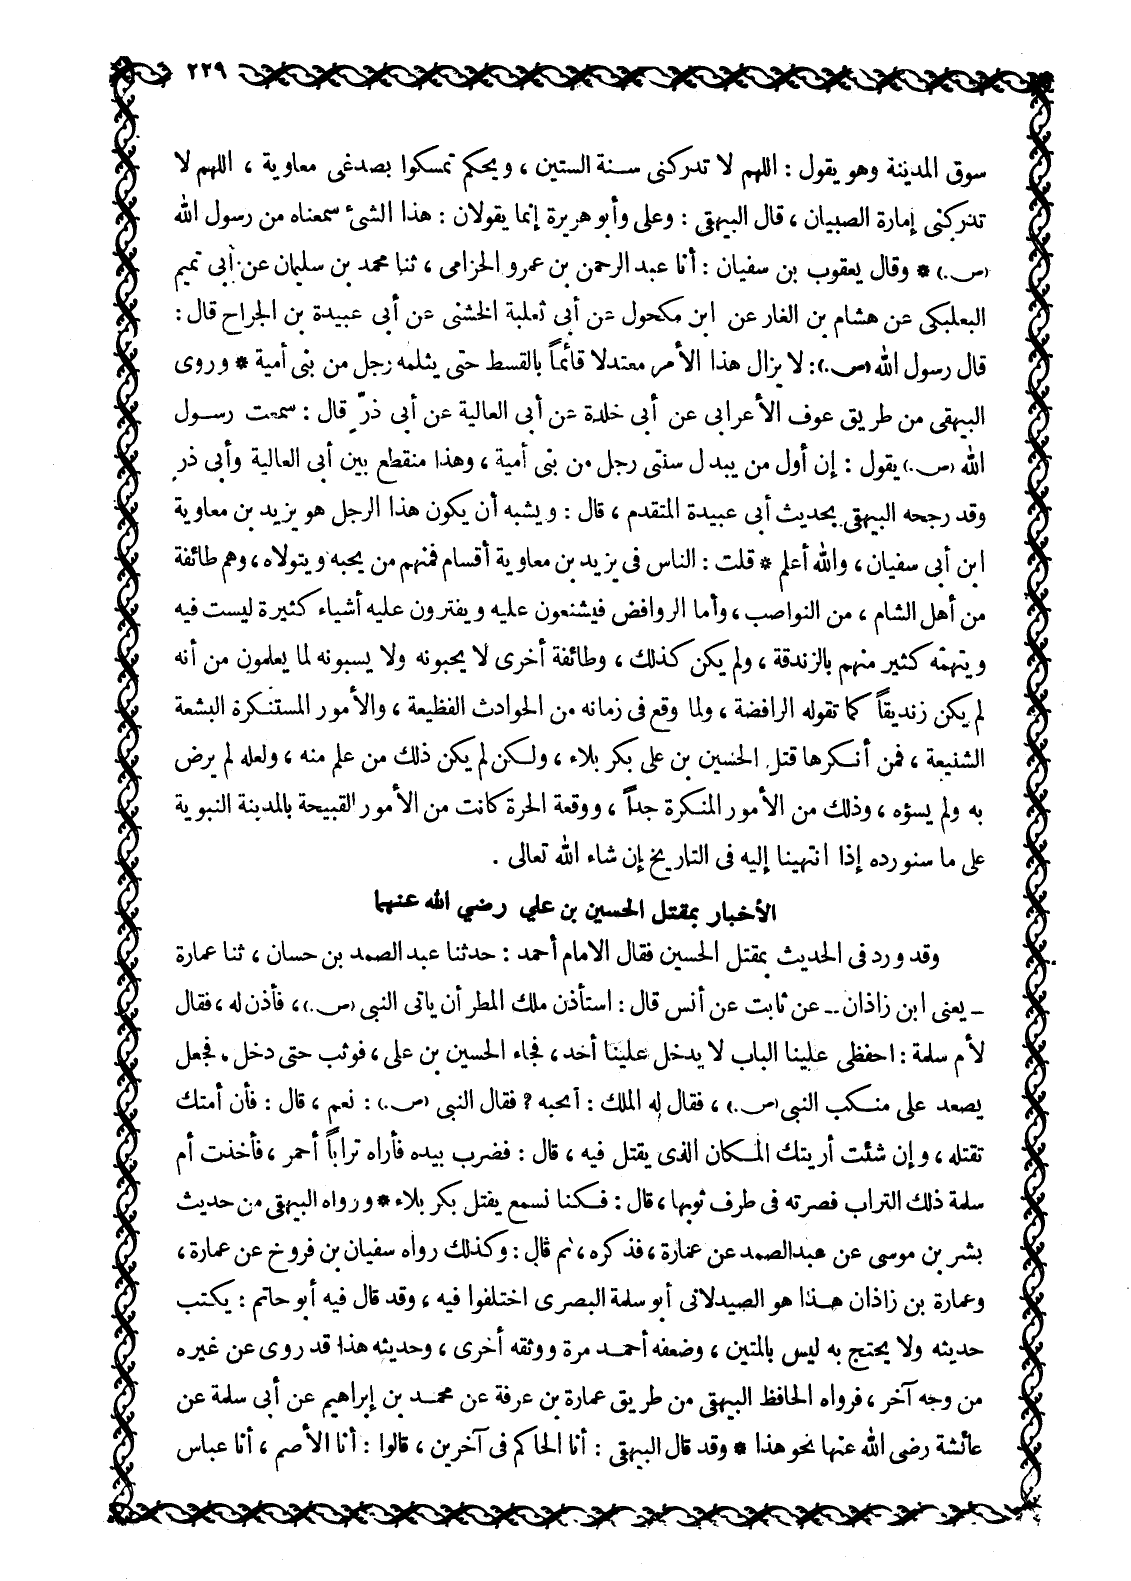 ٢٢٩
سوق المدينة وهو يقول : اللهم لا تدركنى سنة الستين ، ويحكم تمسكوا بصدغى معاوية ، اللهم لا
تدركنى إمارة الصبيان ، قال البيهقى : وعلى وأبو هريرة إنما يقولان : هذا الشئ سمعناه من رسول الله
(ص.) * وقال يعقوب بن سفيان : أنا عبد الرحمن بن عمرو الحزامى ، ثنا محمد بن سليمان عن أبى تميم
البعلبكى عن هشام بن الغار عن ابن مكحول عن أبى ثعلبة الخشنى عن أبى عبيدة بن الجراح قال :
قال رسول الله (ص.) : لا يزال هذا الأمر معتدلا قائماً بالقسط حتى يثلمه رجل من بنى أمية * وروى
البيهقى من طريق عوف الأعرابى عن أبى خلدة عن أبى العالية عن أبى ذرّ قال : سمعت رسول
الله (ص.) يقول : إن أول من يبدل سنتى رجل من بنى أمية ، وهذا منقطع بين أبى العالية وأبى ذر
وقد رجحه البيهقى بحديث أبى عبيدة المتقدم ، قال : ويشبه أن يكون هذا الرجل هو يزيد بن معاوية
ابن أبى سفيان ، والله أعلم * قلت : الناس فى يزيد بن معاوية أقسام فمنهم من يحبه ويتولاه ، وهم طائفة
من أهل الشام ، من النواصب ، وأما الروافض فيشنعون عليه ويفترون عليه أشياء كثيرة ليست فيه
ويتهمه كثير منهم بالزندقة ، ولم يكن كذلك ، وطائفة أخرى لا يحبونه ولا يسبونه لما يعلمون من أنه
لم يكن زنديقاً كما تقوله الرافضة ، ولما وقع فى زمانه من الحوادث الفظيعة ، والأمور المستنكرة البشعة
الشنيعة ، فمن أنكرها قتل الحسين بن على بكربلاء ، ولكن لم يكن ذلك من علم منه ، ولعله لم يرض
به ولم يسؤه ، وذلك من الأمور المنكرة جداً ، ووقعة الحرة كانت من الأمور القبيحة بالمدينة النبوية
على ما سنورده إذا انتهينا إليه فى التاريخ إن شاء الله تعالى .
الأخبار بمقتل الحسين بن علي رضي الله عنهما
وقد ورد فى الحديث بمقتل الحسين فقال الامام أحمد : حدثنا عبد الصمد بن حسان ، ثنا عمارة
_ يعنى ابن زاذان _ عن ثابت عن أنس قال : استأذن ملك المطر أن ياتى النبي (ص.) ، فأذن له ، فقال
لأم سلمة : احفظى علينا الباب لا يدخل علينا أحد ، فجاء الحسين بن على ، فوثب حتى دخل . فجعل
يصعد على منكب النبي (ص.) ، فقال له الملك : أتحبه ? فقال النبي (ص.) : نعم ، قال : فأن أمتك
تقتله ، وإن شئت أريتك المكان الذى يقتل فيه ، قال : فضرب بيده فأراه تراباً أحمر ، فأخذت أم
سلمة ذلك التراب فصرته فى طرف ثوبها ، قال : فكنا نسمع يقتل بكربلاء * ورواه البيهقى من حديث
بشر بن موسى عن عبدالصمد عن عمارة ، فذكره ، ثم قال : وكذلك رواه سفيان بن فروخ عن عمارة ،
وعمارة بن زاذان هذا هو الصيدلانى أبو سلمة البصرى اختلفوا فيه ، وقد قال فيه أبو حاتم : يكتب
حديثه ولا يحتج به ليس بالمتين ، وضعفه أحمد مرة ووثقه أخرى ، وحديثه هذا قد روى عن غيره
من وجه آخر ، فرواه الحافظ البيهقى من طريق عمارة بن عرفة عن محمد بن إبراهيم عن أبى سلمة عن
عائشة رضى الله عنها نحو هذا * وقد قال البيهقى : أنا الحاكم فى آخرين ، قالوا : أنا الأصم ، أنا عباس